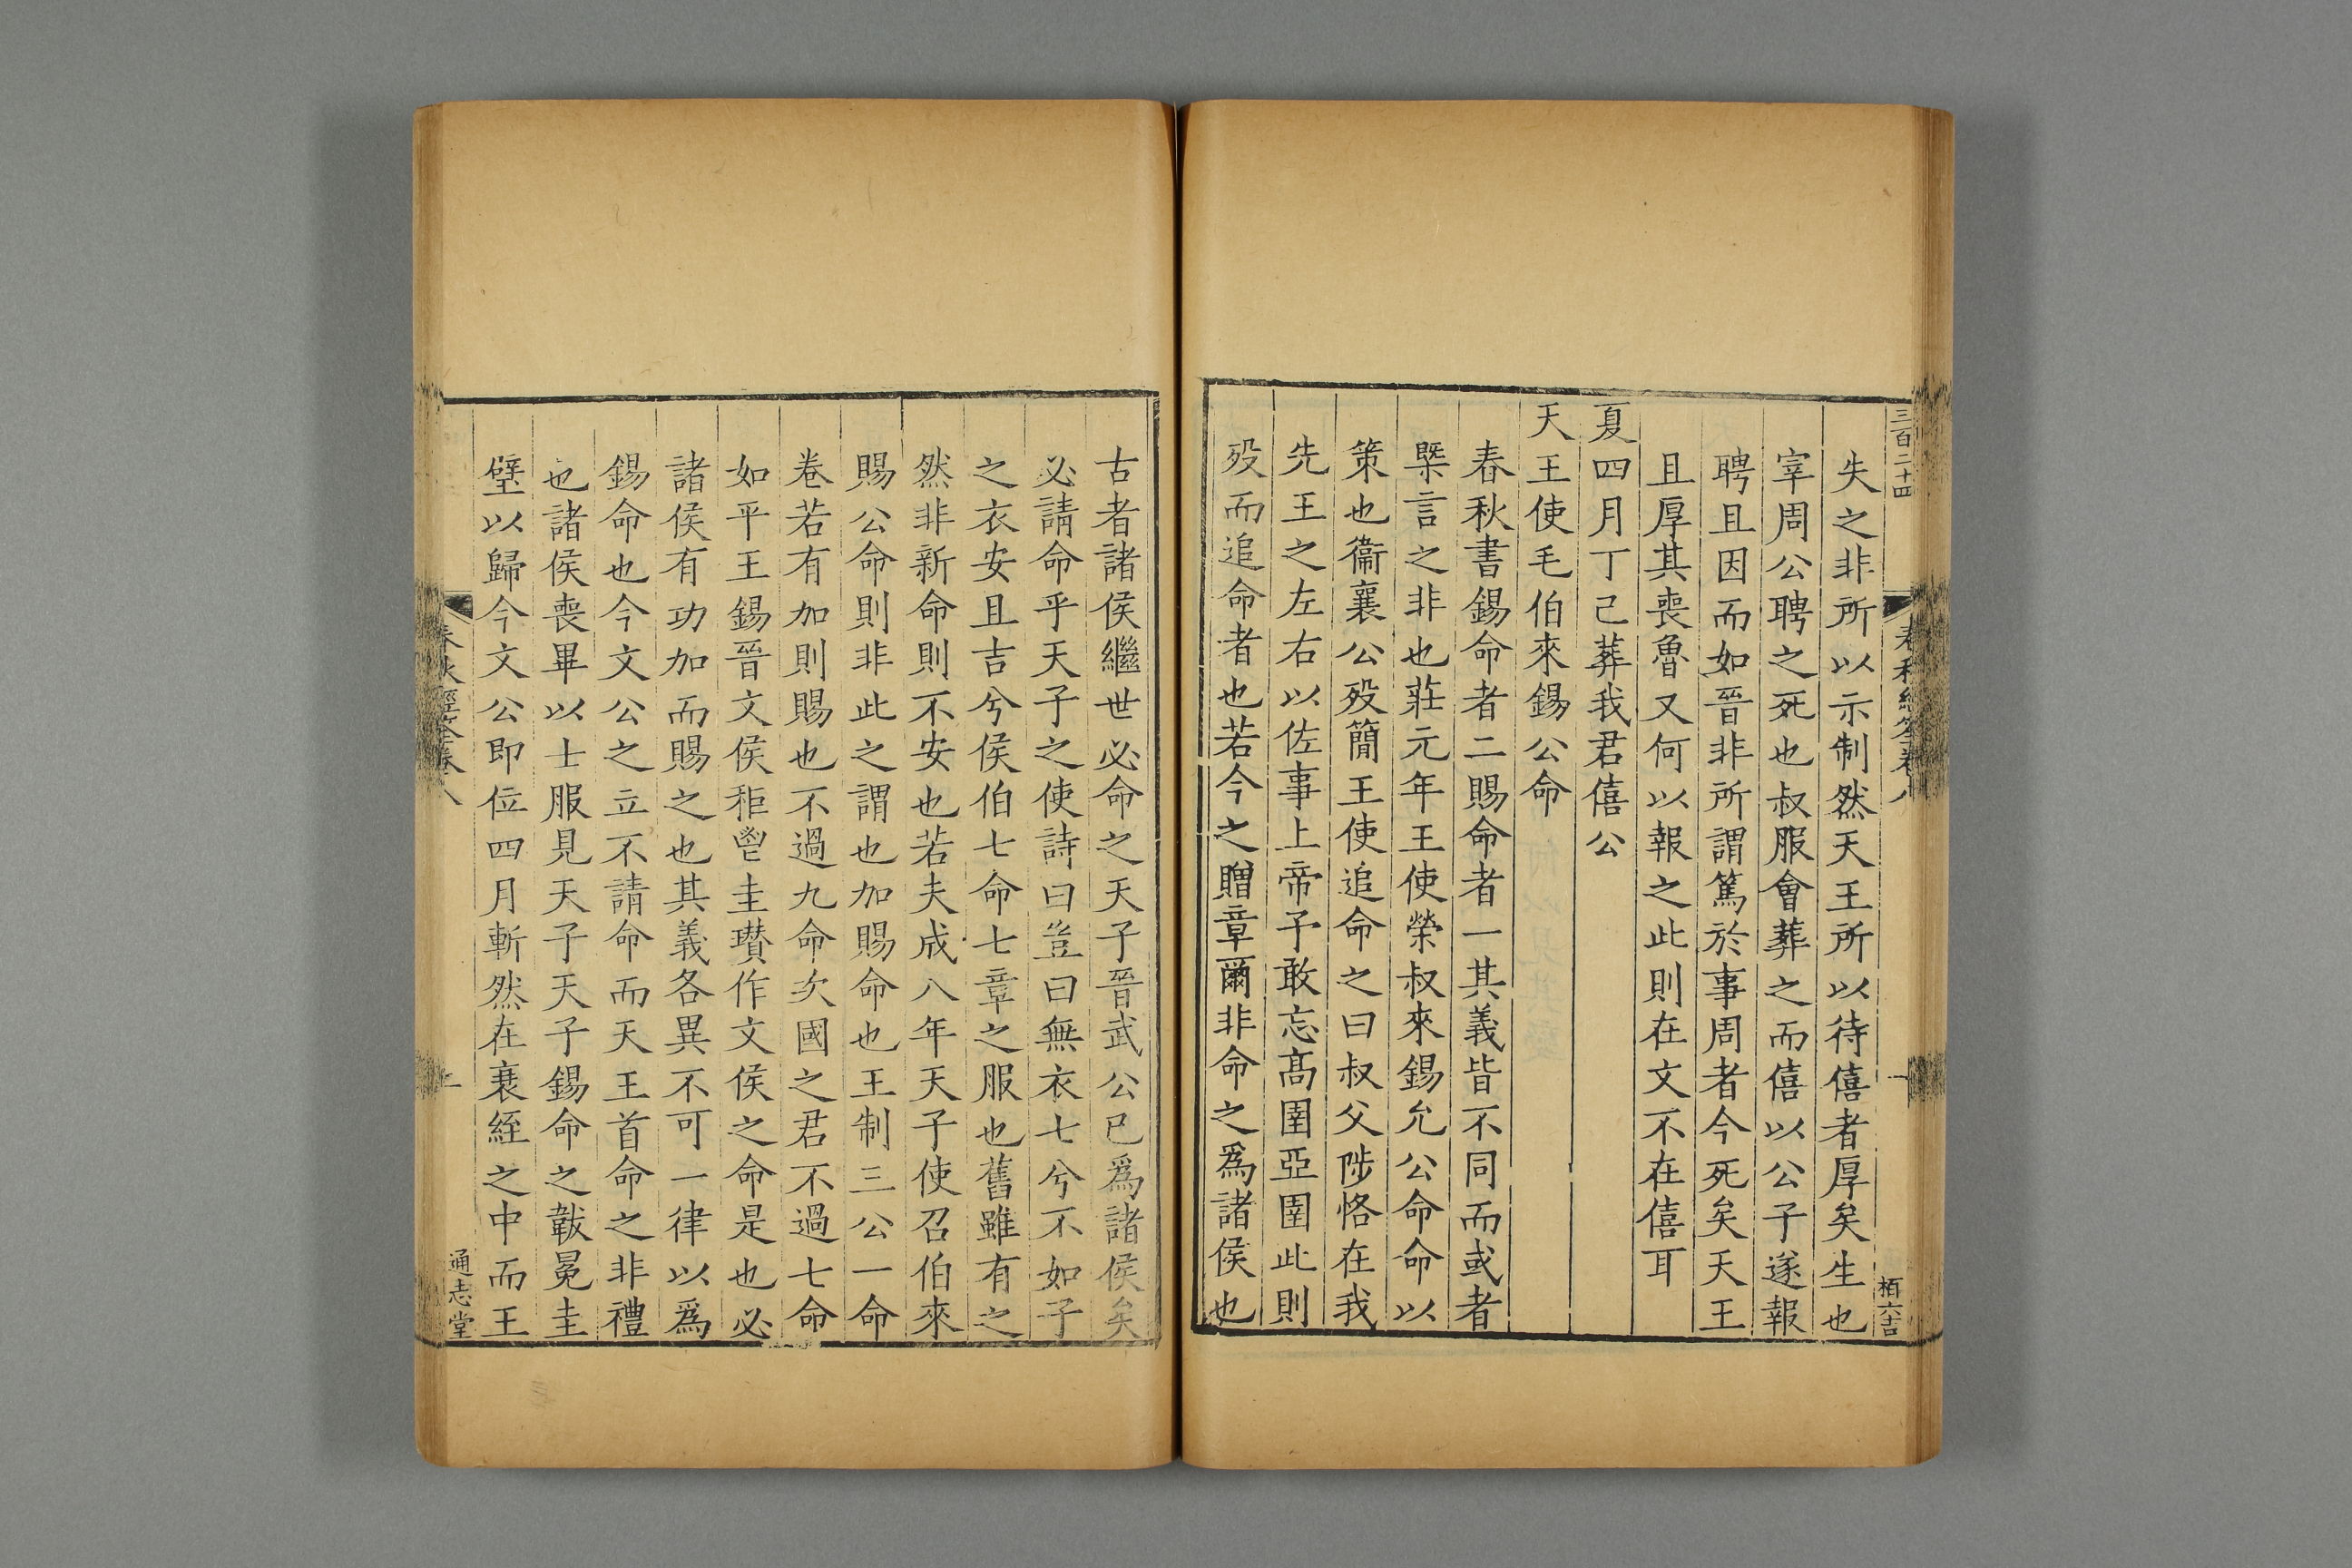 三百二十四
失之非所以示制然天王所以待僖者厚矣生也
宰周公聘之死也叔服會葬之而僖以公子遂報
聘且因而如晉非所謂篤於事周者今死矣天王
且厚其喪魯又何以報之此則在文不在僖耳
夏四月丁己葬我君僖公
天王使毛伯來錫公命
春秋書錫命者二賜命者一其義皆不同而或者
槩言之非也莊元年王使榮叔來錫允公命命以
策也衞襄公歿簡王使追命之曰叔父陟恪在我
先王之左右以佐事上帝予敢忘髙圉亞圉此則
歿而追命者也若今之贈章爾非命之爲諸侯也
古者諸侯繼世必命之天子晉武公已爲諸侯矣
必請命乎天子之使詩曰豈曰無衣七兮不如子
之衣安且吉兮侯伯七命七章之服也舊雖有之
然非新命則不安也若夫成八年天子使召伯來
賜公命則非此之謂也加賜命也王制三公一命
卷若有加則賜也不過九命次國之君不過七命
如平王錫晉文侯秬鬯圭瓚作文侯之命是也必
諸侯有功加而賜之也其義各異不可一律以爲
錫命也今文公之立不請命而天王首命之非禮
也諸侯喪畢以士服見天子天子錫命之韍冕圭
璧以歸今文公即位四月斬然在衰絰之中而王
通志堂